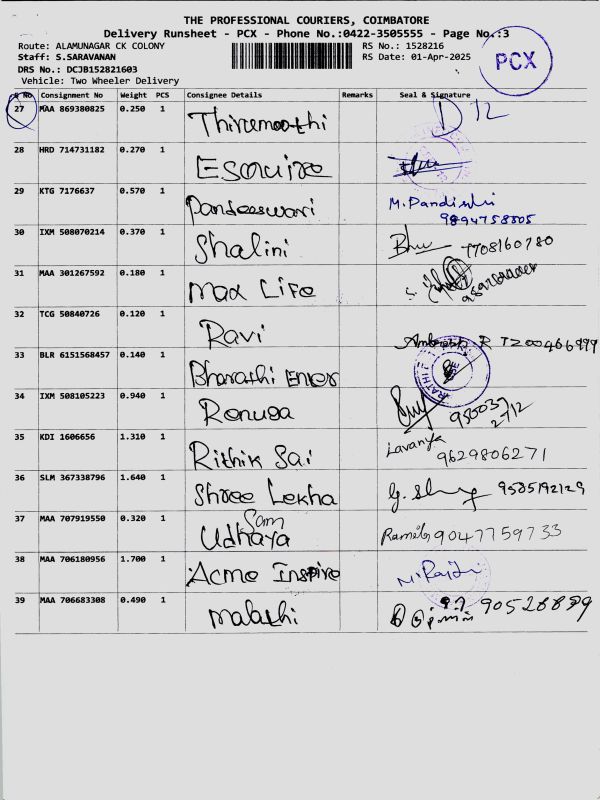 THE PROFESSIONAL COURIERS, COIMBATORE
Delivery Runsheet - PCX - Phone No.:0422-3505555 - Page No.:3
Route: ALAMUNAGAR CK COLONY
RS No.: 1528216
Staff: S.SARAVANAN
RS Date: 01-Apr-2025
DRS No.: DCJB152821603
Vehicle: Two Wheeler Delivery
PCX
S No Consignment No Weight PCS Consignee Details Remarks Seal & Signature
27 MAA 869380825 0.250 1 Thirumoothi D 72
28 HRD 714731182 0.270 1 Esquire
29 KTG 7176637 0.570 1 Pandeeswari M. Pandishi
9894758805
30 IXM 508070214 0.370 1 Shalini Bhu 7708160780
31 MAA 301267592 0.180 1 max Life
32 TCG 50840726 0.120 1 Ravi
33 BLR 6151568457 0.140 1 Bharathi Enter
34 IXM 508105223 0.940 1 Renuga
35 KDI 1606656 1.310 1 Rithik Sai Lavanya
9629806271
36 SLM 367338796 1.640 1 Shree Lekha 9585192129
37 MAA 707919550 0.320 1 Udhaya Sam 9047759733
38 MAA 706180956 1.700 1 Acme Inspire
39 MAA 706683308 0.490 1 malathi